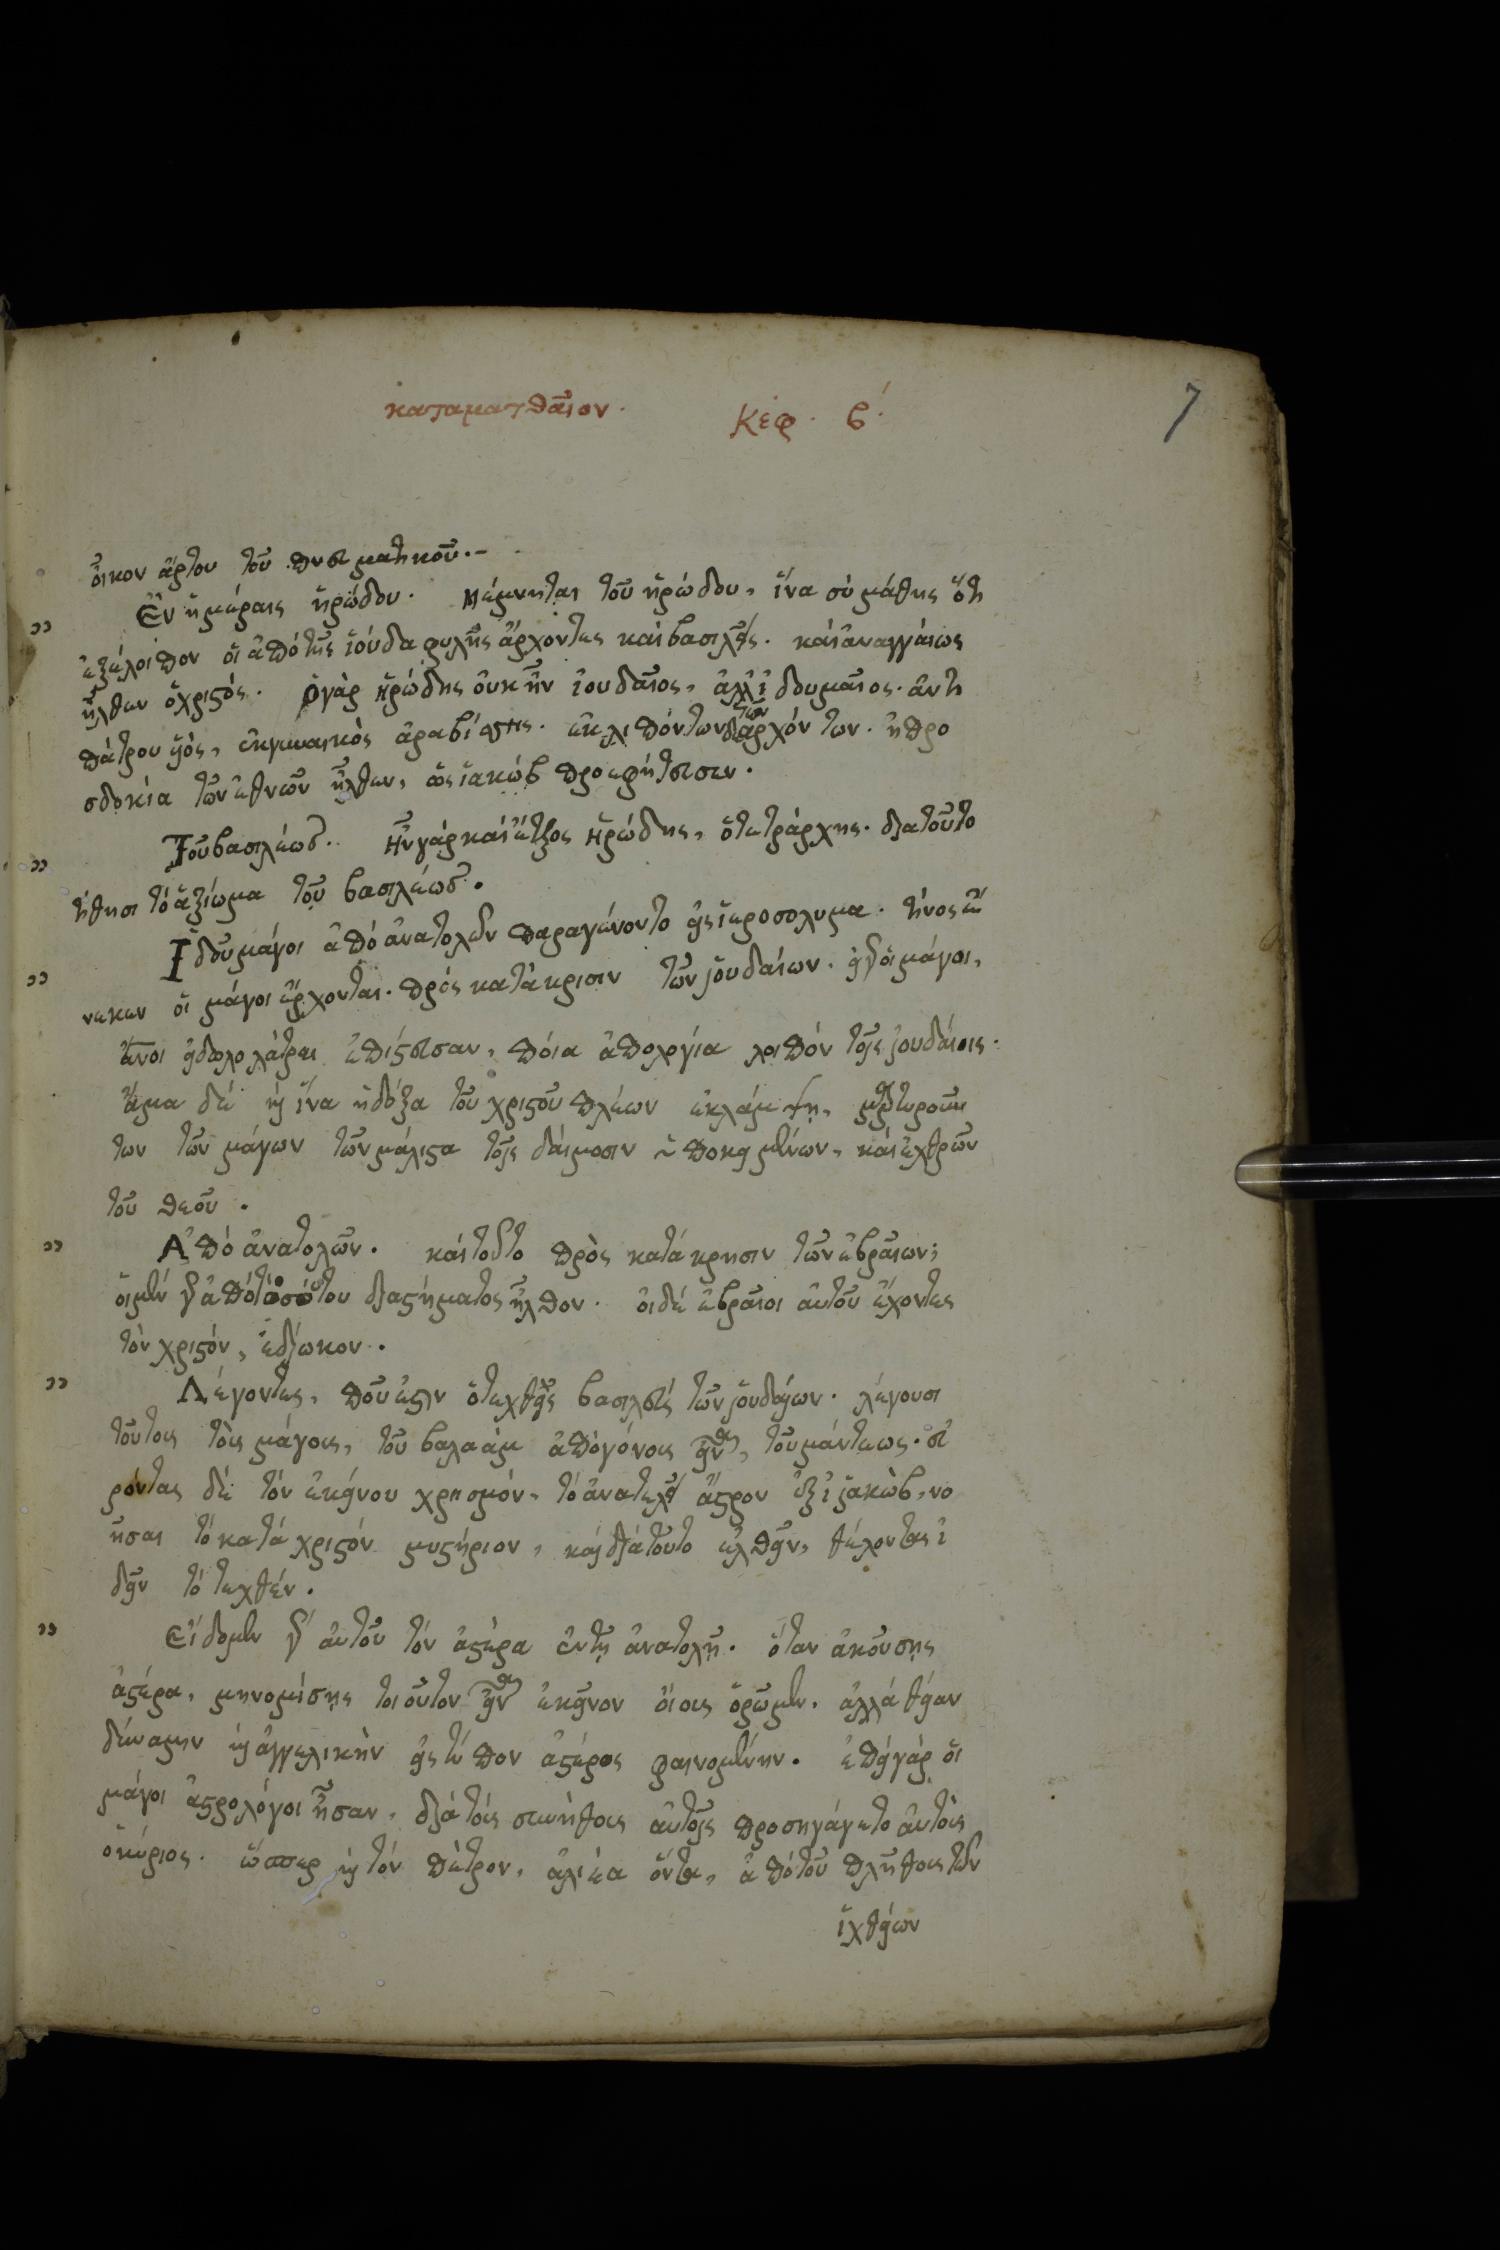 καταματθαῖον. Κεφ. β΄.
7
ὄικον ἄρτου τοῦ πνευματικοῦ.-
Ἐν ἡμέραις ἡρώδου. Μέμνηται τοῦ ἡρώδου, ἵνα σὺ μάθης ὅτι
ἐξέλοιπον οἱ ἀπό τῆς ἰούδα φυλῆς ἄρχοντες καὶ βασιλεῖς. καὶ ἀναγγαίως
ἦλθεν ὁ χριστός. Ὁ γὰρ ἡρώδης οὐκ ἦν ἰουδαῖος, ἀλλ' ἰδουμαῖος. ἀντι
πάτρου υἱὸς, ἐκ γυναικὸς ἀραβίσσης. ἐκλιπόντων δὲ τῶν ἀρχόντων. ἡ προ
σδοκία τῶν ἐθνῶν ἦλθεν, ὡς ἰακώβ προεφήτευσεν.
Τοῦ βασιλέως. Ἦν γάρ καὶ ἕτερος ἡρώδης, ὁ τετράρχης. διατοῦτο
τίθησι τὸ ἀξίωμα τοῦ βασιλέως.
Ἰδοῦ μάγοι ἀπό ἀνατολῶν παραγένοντο εἰς ἱεροσολυμα. τίνος ἕ
νεκεν οἱ μάγοι ἔρχονται. πρός κατάκρισιν τῶν ἰουδαίων. εἰ γὰρ οἱ μάγοι,
ἄνοι εἰδωλολάτραι ἐπίστευσαν, πόια ἀπολογία λοιπόν τοῖς ἰουδάιοις.
Ἅμα δέ καὶ ἵνα ἡ δόξα τοῦ χριστοῦ πλέων ἐκλάμψη, μαρτυρούν
των τῶν μάγων τῶν μάλιστα τοῖς δάιμοσιν ὑποκειμένων, καὶ ἐχθρῶν
τοῦ θεοῦ.
Ἀπό ἀνατολῶν. καὶ τοῦτο πρὸς κατάκρησιν τῶν ἑβραίων;
οἱ μέν γὰρ ἀπό τοσούτου διαστήματος ἦλθον. οἱ δέ ἑβραῖοι ἀυτοῦ ἔχοντες
τὸν χριστόν, ἐδίωκον.
Λέγοντες, ποῦ ἐστιν ὁ τεχθεὶς βασιλεὺς τῶν ἰουδαίων. λέγουσι
τοῦτοις τὸις μάγοις, τοῦ βαλαάμ ἀπογόνοις εἶναι, τοῦ μάντεως. εὑ
ρόντας δέ τόν ἐκείνου χρησμόν, τὸ ἀνατελεῖ ἄστρον ἐξ ἰακώβ, νο
ῆσαι τὸ κατά χριστόν μυστήριον, καὶ διάτοῦτο ἐλθεῖν, θέλοντες ἰ
δεῖν τό τεχθέν.
Εἴδομεν γὰρ ἀυτοῦ τόν ἀστέρα ἐν τῇ ἀνατολῇ. ὅταν ἀκούσης
ἀστέρα, μη νομίσης τοιοῦτον εἶναι ἐκεῖνον ὅιοις ὁρῶμεν. ἀλλά θείαν
δύναμιν καὶ ἀγγελικὴν εἰς τύπον ἀστέρος φαινομένην. ἐπεὶ γάρ οἱ
μάγοι ἀστρολόγοι ἦσαν, διά τοῖς συνήθοις αὐτοῖς προσηγάγετο ἀυτοὺς
ὁ κύριος. ὥσπερ καὶ τόν πέτρον, ἁλιέα ὄντα, ἀπό τοῦ πλήθοις τῶν
ἰχθύων